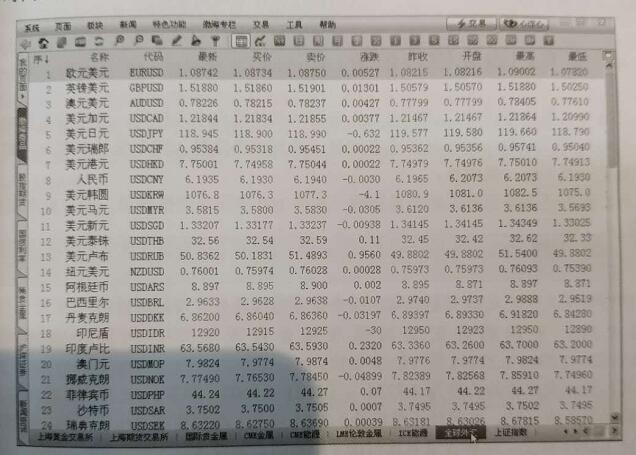 系统 页面 板块 新闻 特色功能 渤海专栏 交易 工具 帮助 交易
序↓ 名称 代码 最新 买价 卖价 涨跌 昨收 开盘 最高 最低
1 欧元美元 EURUSD 1.08742 1.08734 1.08750 0.00527 1.08215 1.08216 1.09002 1.07820
2 英镑美元 GBPUSD 1.51880 1.51860 1.51901 0.01301 1.50579 1.50570 1.51880 1.50250
3 澳元美元 AUDUSD 0.78226 0.78215 0.78237 0.00427 0.77799 0.77799 0.78405 0.77610
4 美元加元 USDCAD 1.21844 1.21834 1.21855 0.00377 1.21467 1.21467 1.21864 1.20990
5 美元日元 USDJPY 118.945 118.900 118.990 -0.632 119.577 119.580 119.660 118.790
6 美元瑞郎 USDCHF 0.95384 0.95318 0.95451 0.00022 0.95362 0.95356 0.95741 0.95040
7 美元港元 USDHKD 7.75001 7.74958 7.75044 0.00022 7.74979 7.74976 7.75010 7.74913
8 人民币 USDCNY 6.1935 6.1930 6.1940 -0.0030 6.1965 6.2073 6.2073 6.1930
9 美元韩圆 USDKRW 1076.8 1076.3 1077.3 -4.1 1080.9 1081.0 1082.5 1075.0
10 美元马元 USDMYR 3.5815 3.5800 3.5830 -0.0305 3.6120 3.6136 3.6136 3.5693
11 美元新元 USDSGD 1.33207 1.33177 1.33237 -0.00938 1.34145 1.34145 1.34349 1.33025
12 美元泰铢 USDTHB 32.56 32.54 32.59 0.11 32.45 32.42 32.62 32.33
13 美元卢布 USDRUB 50.8362 50.1831 51.4893 0.9560 49.8802 49.8802 51.5400 49.8802
14 纽元美元 NZDUSD 0.76001 0.75974 0.76028 0.00028 0.75973 0.75973 0.76093 0.75390
15 阿根廷币 USDARS 8.897 8.895 8.900 0.002 8.895 8.871 8.897 8.871
16 巴西里尔 USDBRL 2.9633 2.9628 2.9638 -0.0107 2.9740 2.9737 2.9888 2.9519
17 丹麦克朗 USDDKK 6.86200 6.86040 6.86360 -0.03197 6.89397 6.89330 6.91820 6.84280
18 印尼盾 USDIDR 12920 12915 12925 -30 12950 12923 12950 12890
19 印度卢比 USDINR 63.5680 63.5430 63.5930 0.2320 63.3360 63.2600 63.7000 63.2000
20 澳门元 USDMOP 7.9824 7.9774 7.9874 0.0048 7.9776 7.9774 7.9824 7.9774
21 挪威克朗 USDNOK 7.77490 7.76530 7.78450 -0.04899 7.82389 7.82568 7.85910 7.74960
22 菲律宾币 USDPHP 44.24 44.22 44.27 0.07 44.17 44.22 44.27 44.17
23 沙特币 USDSAR 3.7502 3.7500 3.7505 0.0007 3.7495 3.7502 3.7502 3.7495
24 瑞典克朗 USDSEK 8.63220 8.62750 8.63690 0.00039 8.63181 8.63026 8.67815 8.58570
上海黄金交易所 上海期货交易所 国际贵金属 CME金属 CME能源 LME伦敦金属 ICE能源 全球外汇 上证指数
我的页面
渤海商品
股指期货
国债利率